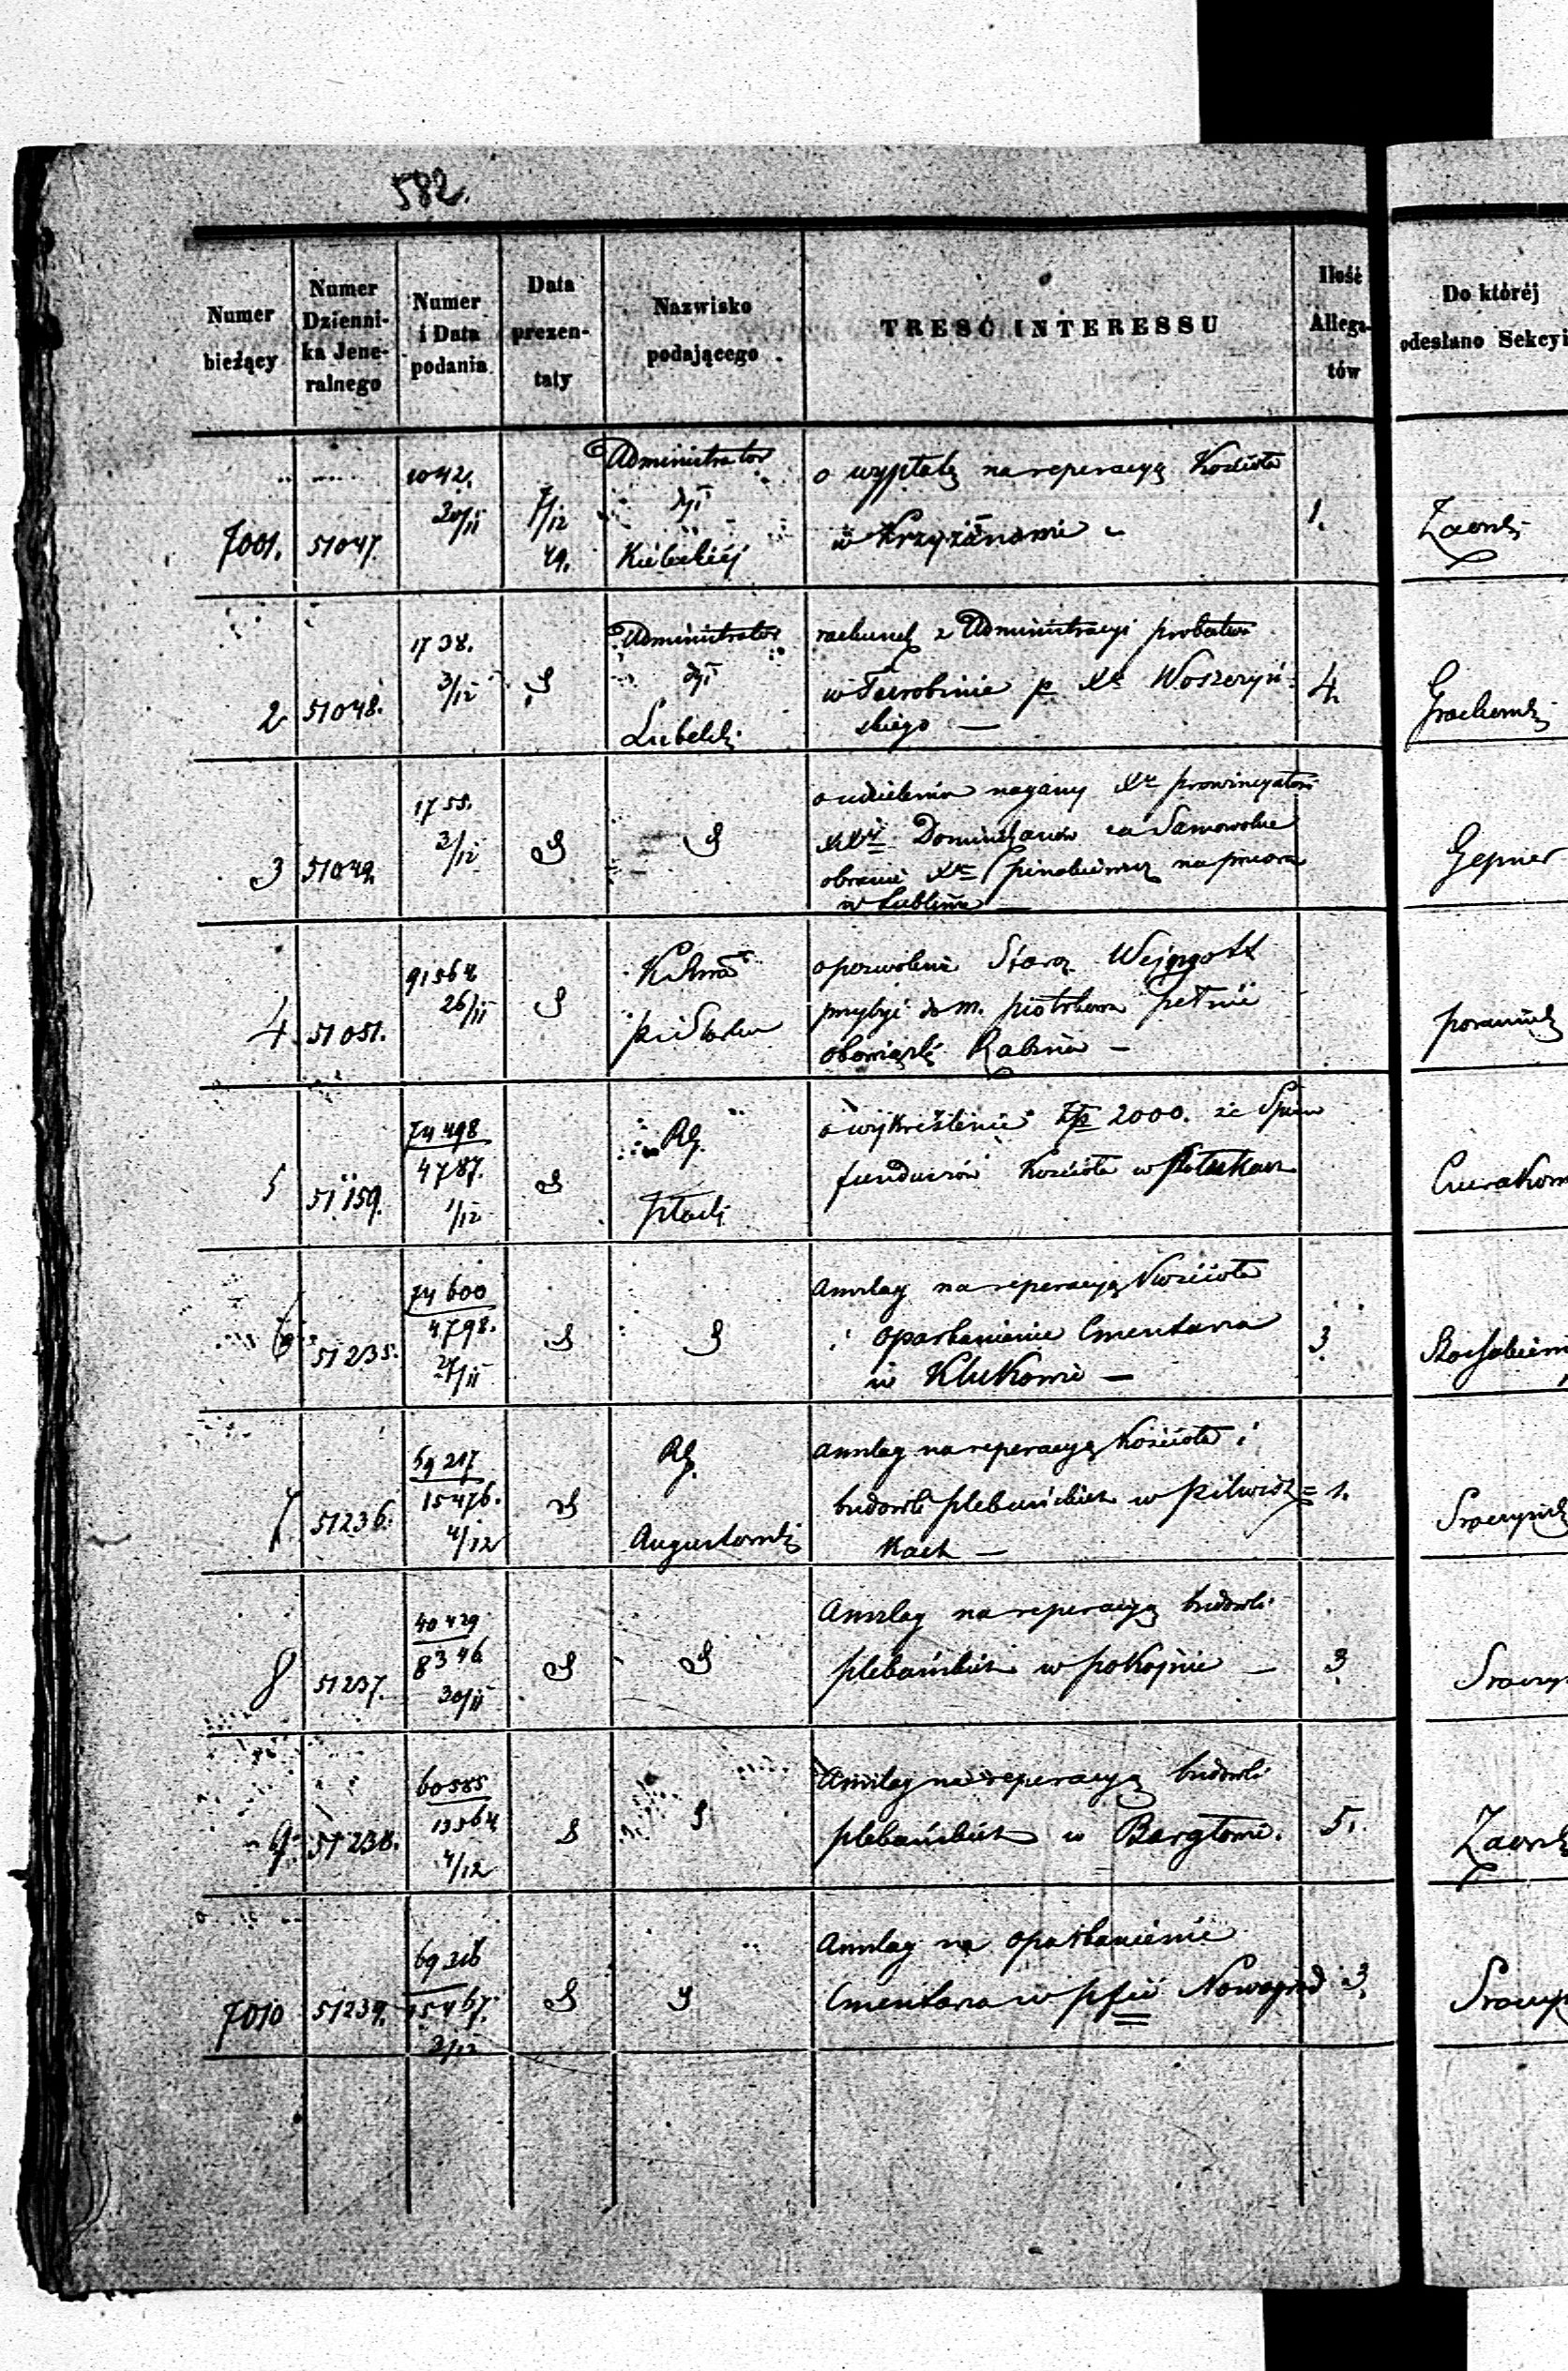 582.
Numer bieżący | Numer Dzienni-ka Jene-ralnego | Numer i Data podania | Data prezen-taty | Nazwisko podającego | TREŚĆ INTERESSU | Ilość Allega-tów | Do któréj odesłano Sekcyi
7001. | 51047. | 1042. 30/11 | 7/12 49. | Administrator dyi Kieleckiéj | o wypłatę na reperacyą Kościoła
w Krzyżanowie | 1.
2 | 51048. | 1738. 3/12 | Administrator dyi Lubelski | rachunek z Administracyi probostwa
w Turobinie p Xa Woszczyń-
skiego — | 4.
3 | 51049. | 1755. 3/12 | o udzielenie nagany Xu prowincyałowi
XXy Dominikanów za Samowolne
obranie Xa na przeora
w Lublinie — | Gepner
4 | 51051. | 91564 26/11 | o pozwolenie Staroz.
przybyć do m. Piotrkowa pełnić
obowiązki Rabina —
5 | 51159. | 74498 4787. 1/12 | RG. Płocki | o wykreślenie Złp 2000. ze
funduszów Kościoła w
6 | 51235. | 74600 4798. 27/11 | Anszlag na reperacyą Kościoła
i oparkanienie Cmentarza
w Klukowie — | 3.
7 | 51236. | 69217 15476. 4/12 | RG. Augustowski | Anszlag na reperacyą Kościoła i
budowli plebańskich w Pilwisz=
kach — | 1.
8 | 51237. | 40429 8346 30/11 | Anszlag na reperacyą budowli
plebańskich w Pokojnie — | 3
9 | 51238. | 60585 13564 4/12 | Anszlag na reperacyą budowli
plebańskich w Bargłowie. | 5.
7010 | 51239. | 69216 15467. 3/12 | Anszlag na oparkanienie
Cmentarza w pfii Nowogród | 3.